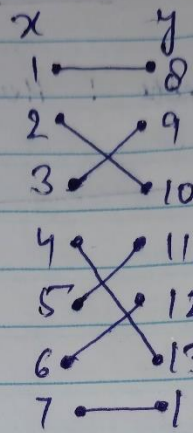 x y
1 8
2 9
3 10
4 11
5 12
6 13
7 1